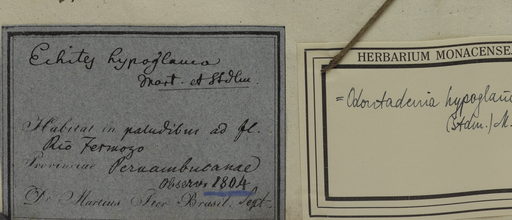 Echites hypoglauca
Mart. et Stdlm.
Habitat in paludibus ad fl.
Rio Formozo
Provinciae Pernambucanae
Observ. 1804
Dr. Martius Iter Brasil. Sept.
HERBARIUM MONACENSE
= Odontadenia hypoglauca
(Stdm.) M.